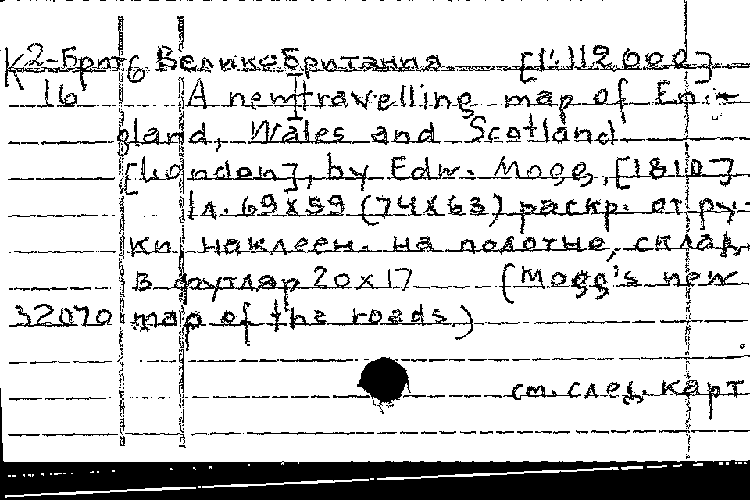 К2-Брит6 Великобритания. [1:112000]
16 A new travelling map of En-
gland, Wales and Scotland
[London], by Edw. Mogg, [1810]
1 л. 69x59 (74x63) раскр. от ру-
ки, наклеен. на полотне, склад.
в футляр 20x17 (Mogg's new
32070 map of the roads.)
см. след. карт